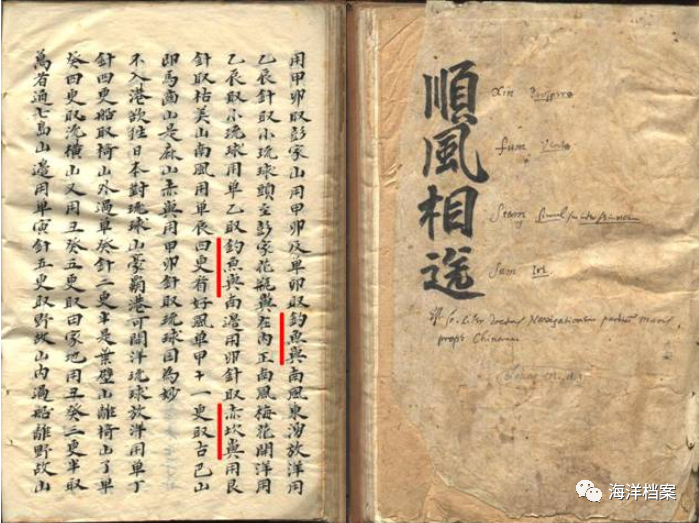 用甲卯取彭家山用甲卯及單卯取釣魚嶼南風東湧放洋用
乙辰針取小琉球頭至彭家花瓶嶼在內正南風梅花開洋用
乙辰取小琉球用單乙取釣魚嶼南邊用卯針取赤坎嶼用艮
針取枯美山南風用單辰四更看好風單甲十一更取古巴山
即馬齒山是麻山赤嶼用甲卯針取琉球國為妙
不入港欲往日本對琉球山豪霸港可開洋琉球放洋用單丁
針四更船取椅山外過單癸針二更半是葉壁山離椅山了單
癸四更取流橫山又用丑癸五更取田家地用丑癸三更半取
萬者通七島山邊用單寅針五更取野故山內過船離野故山
順風相送
海洋档案